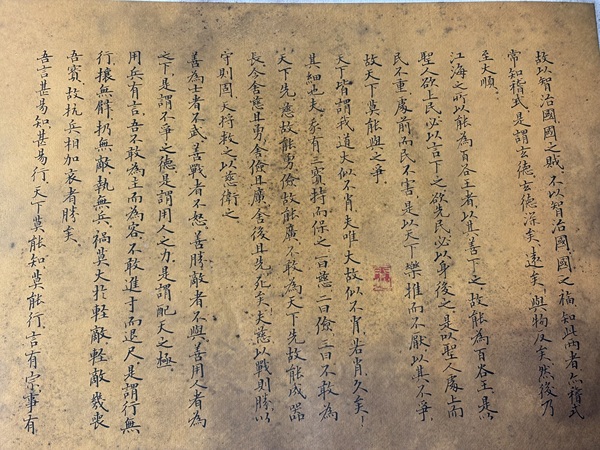 故以智治國國之賊,不以智治國國之福,知此兩者亦稽式
常知稽式是謂玄德玄德深矣、遠矣、與物反矣然後乃
至大順。
江海之所以能為百谷王者以其善下之故能為百谷王是以
聖人欲上民必以言下之欲先民必以身後之是以聖人處上而
民不重處前而民不害是以天下樂推而不厭以其不爭,
故天下莫能與之爭。
天下皆謂我道大似不肖夫唯大故似不肖若肖久矣!
其細也夫我有三寶持而保之一曰慈二曰儉三曰不敢為
天下先,慈故能勇儉故能廣不敢為天下先故能成器
長今舍慈且勇舍儉且廣舍後且先死矣夫慈以戰則勝以
守則固天將救之以慈衛之
善為士者不武善戰者不怒善勝敵者不與善用人者為
之下是謂不爭之德是謂用人之力是謂配天之極
用兵有言吾不敢為主而為客不敢進寸而退尺是謂行無
行攘無臂扔無敵執無兵禍莫大於輕敵輕敵幾喪
吾寶故抗兵相加哀者勝矣
吾言甚易知甚易行天下莫能知莫能行言有宗事有